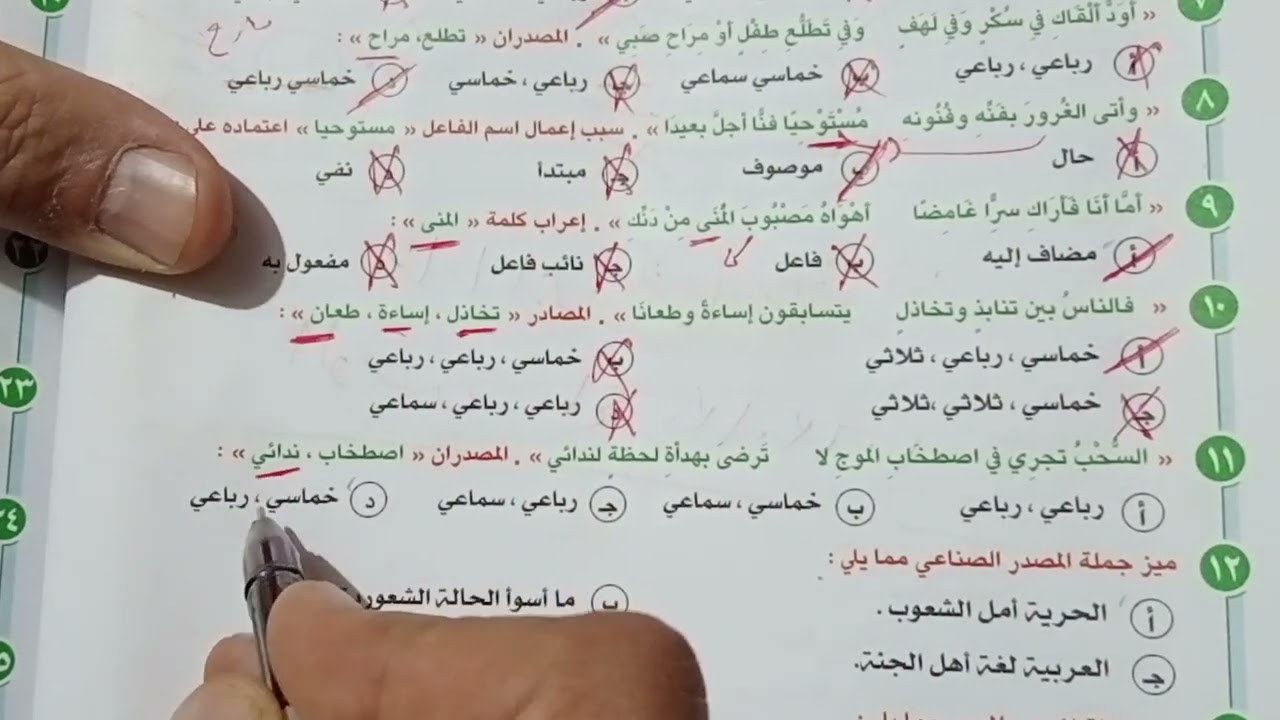 ٧ « أَوَدُّ أَلْقَاكِ فِي سُكْرٍ وَفِي لَهَفٍ وَفِي تَطَلُّعِ طِفْلٍ أَوْ مِرَاحِ صَبِي » . المصدران « تطلع، مراح » :
أ رباعي ، رباعي ب خماسي سماعي جـ رباعي ، خماسي د خماسي رباعي
٨ « وأتى الغُرورَ بفَنِّهِ وفُنُونه مُسْتَوْحِيًا فنًّا أجلَّ بعيدَا » . سبب إعمال اسم الفاعل « مستوحيا » اعتماده على
أ حال ب موصوف جـ مبتدأ د نفي
٩ « أَمَّا أَنَا فَأَرَاكِ سِرًّا غَامِضًا أَهْوَاهُ مَصْبُوبَ الْمُنَى مِنْ دَنِّكِ » . إعراب كلمة « المنى » :
أ مضاف إليه ب فاعل جـ نائب فاعل د مفعول به
١٠ « فالناسُ بين تنابذٍ وتخاذلٍ يتسابقون إساءةً وطعانَا » . المصادر « تخاذل ، إساءة ، طعان » :
أ خماسي ، رباعي ، ثلاثي ب خماسي ، رباعي ، رباعي
جـ خماسي ، ثلاثي ،ثلاثي د رباعي ، رباعي ، سماعي
١١ « السُّحْبُ تجرِي في اصطخَابِ الموجِ لا تَرضىَ بهدأةِ لحظةٍ لندائي » . المصدران « اصطخاب ، ندائي » :
أ رباعي ، رباعي ب خماسي ، سماعي جـ رباعي ، سماعي د خماسي ، رباعي
١٢ ميز جملة المصدر الصناعي مما يلي :
أ الحرية أمل الشعوب . ب ما أسوأ الحالة
جـ العربية لغة أهل الجنة.
٢٣